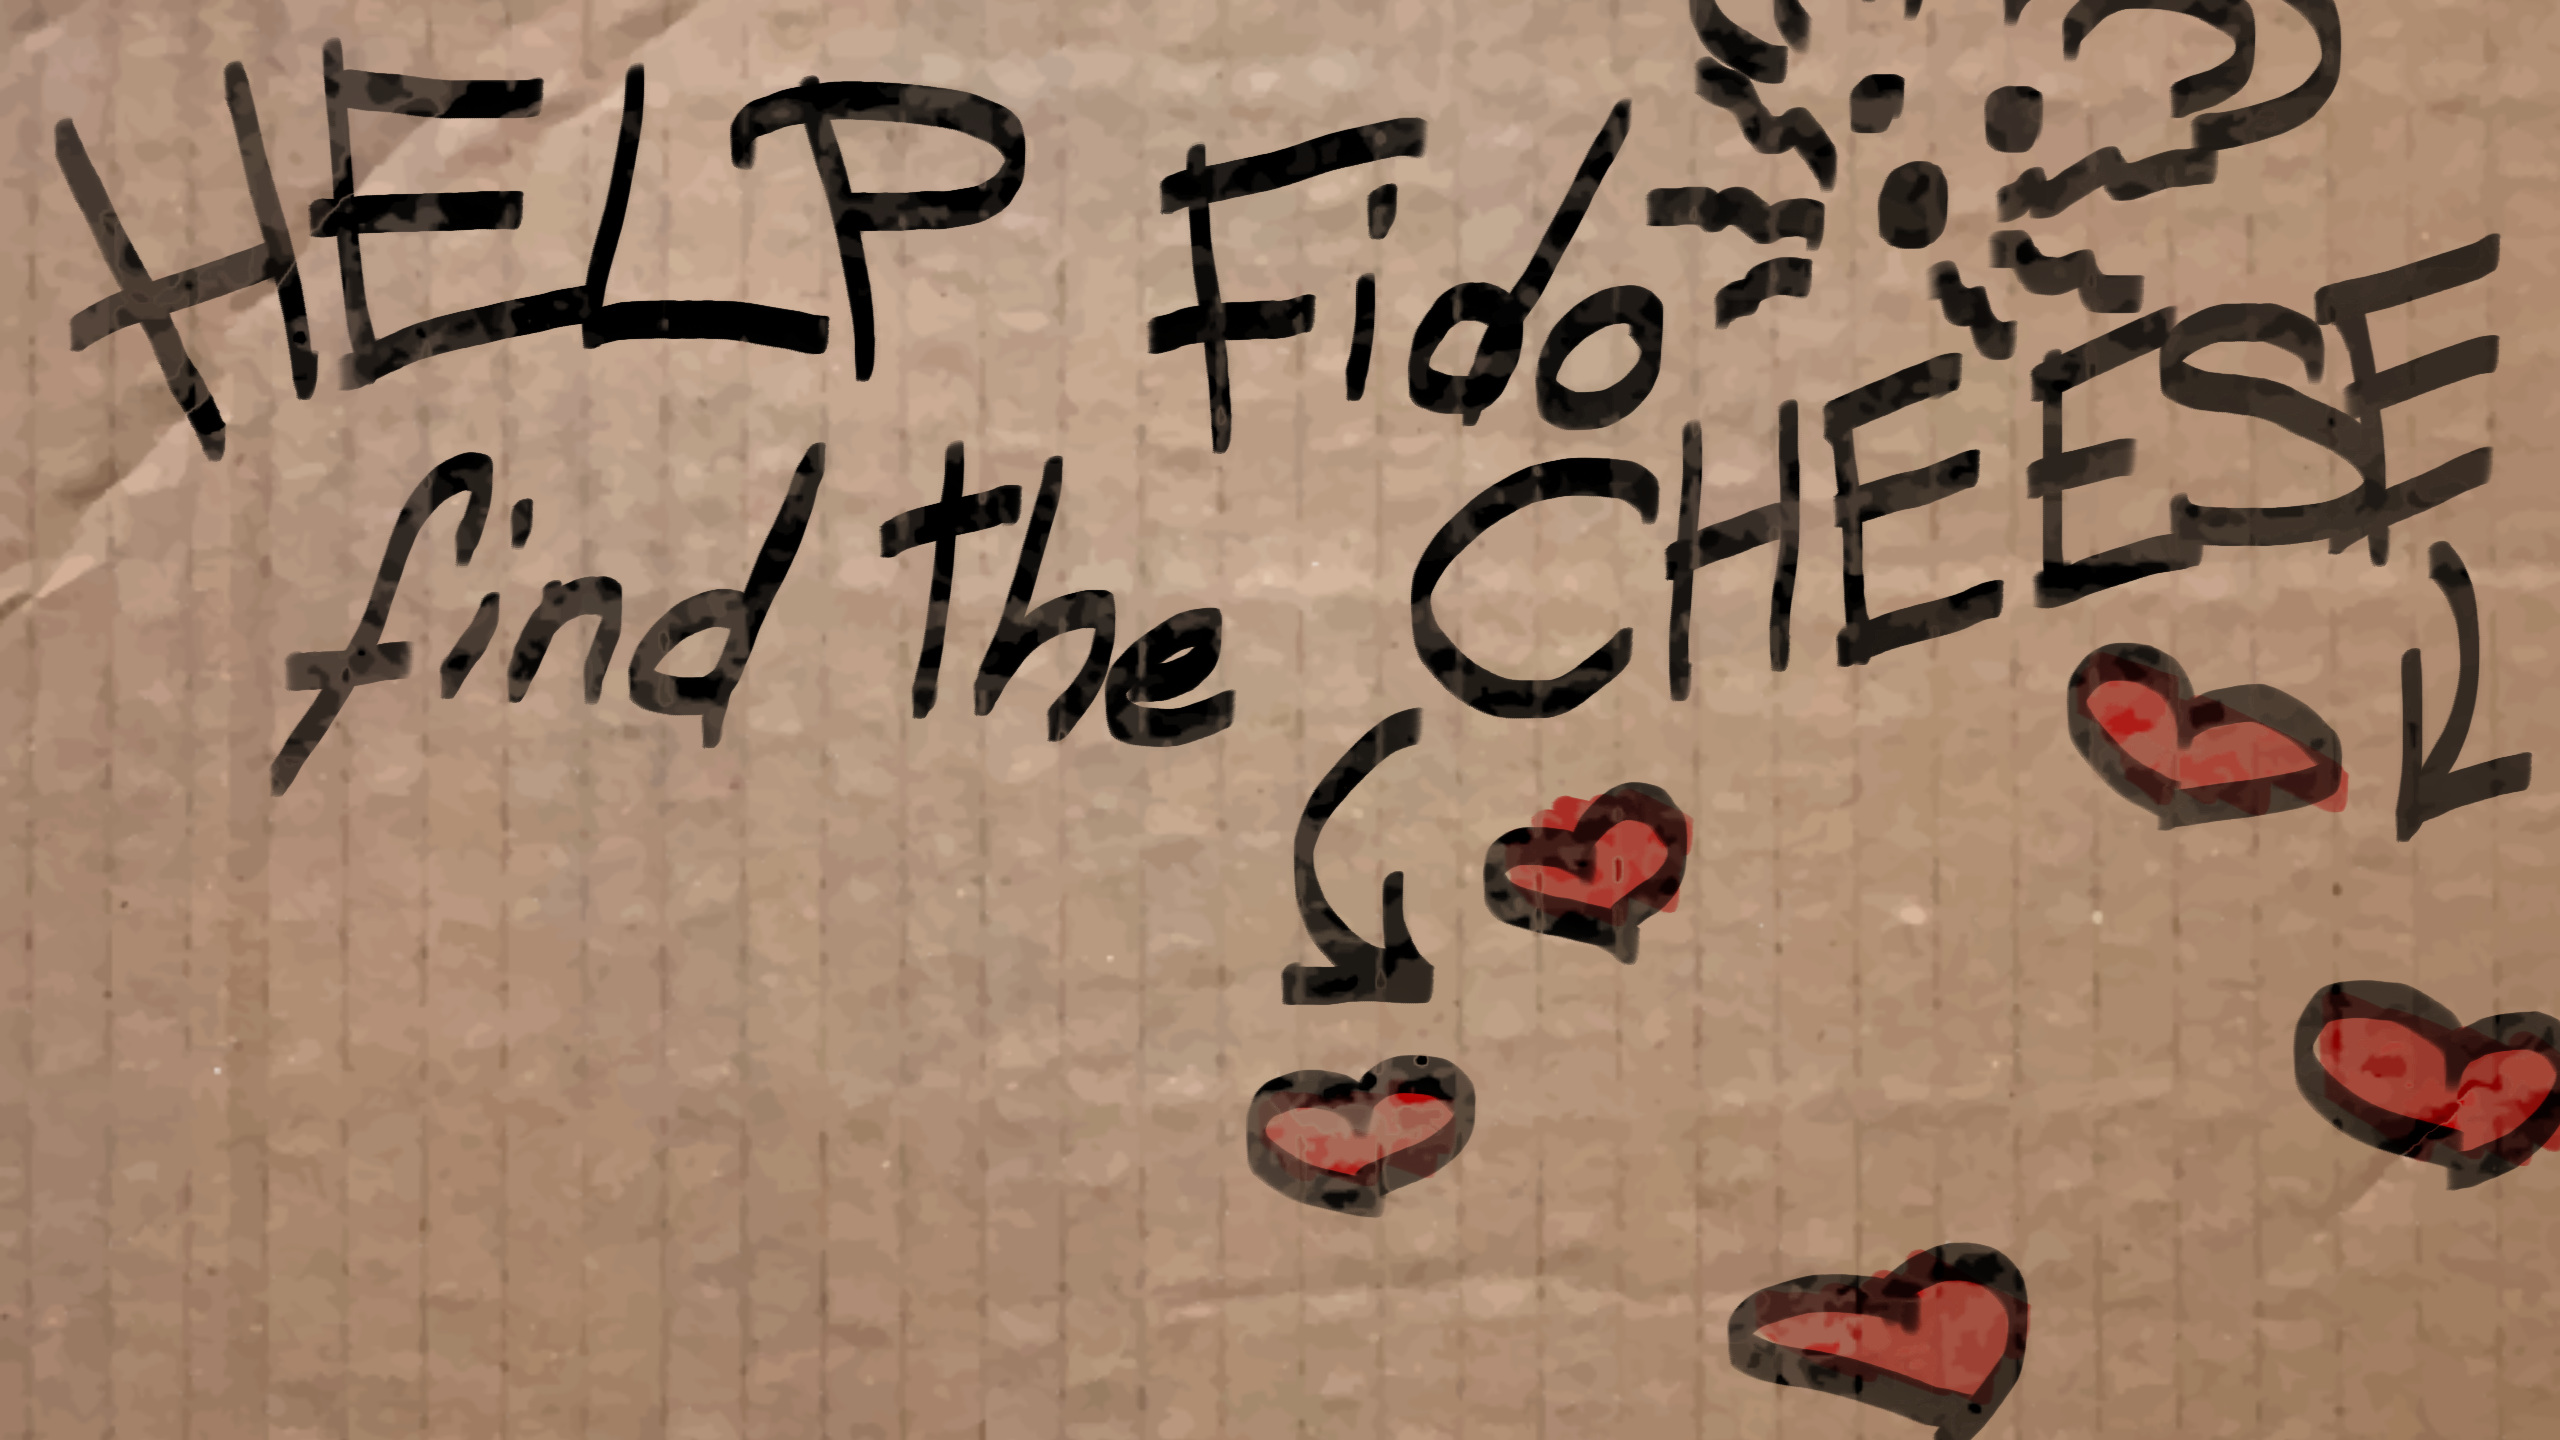 HELP Fido
find the CHEESE